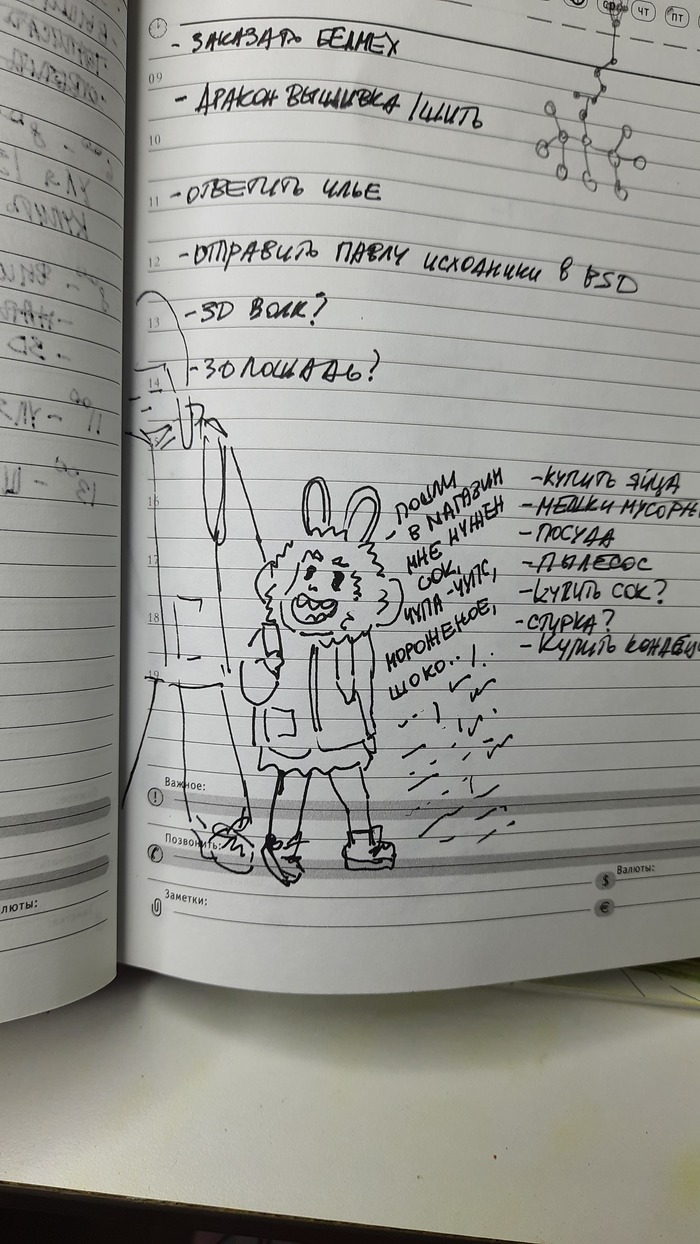 ЧТ ПТ
- ЗАКАЗАТЬ БЕЛМЕХ
09
- ДРАКОН ВЫШИВКА / ШИТЬ
10
11 - ОТВЕТИТЬ ИЛЬЕ
12 - ОТПРАВИТЬ ПАВЛУ ИСХОДНИКИ В PSD
13 - 3D ВОЛК?
14 - 3D ЛОШАДЬ?
- ПОШЛИ
В МАГАЗИН
МНЕ НУЖЕН
СОК,
ЧУПА-ЧУПС,
МОРОЖЕНОЕ,
ШОКО..
- КУПИТЬ ЯЙЦА
- МЕШКИ МУСОРН
- ПОСУДА
- ПЫЛЕСОС
- КУПИТЬ СОК?
- СТИРКА?
- КУПИТЬ
16
17
18
19
Важное:
Позвонить:
Валюты:
$
Заметки:
€
люты: